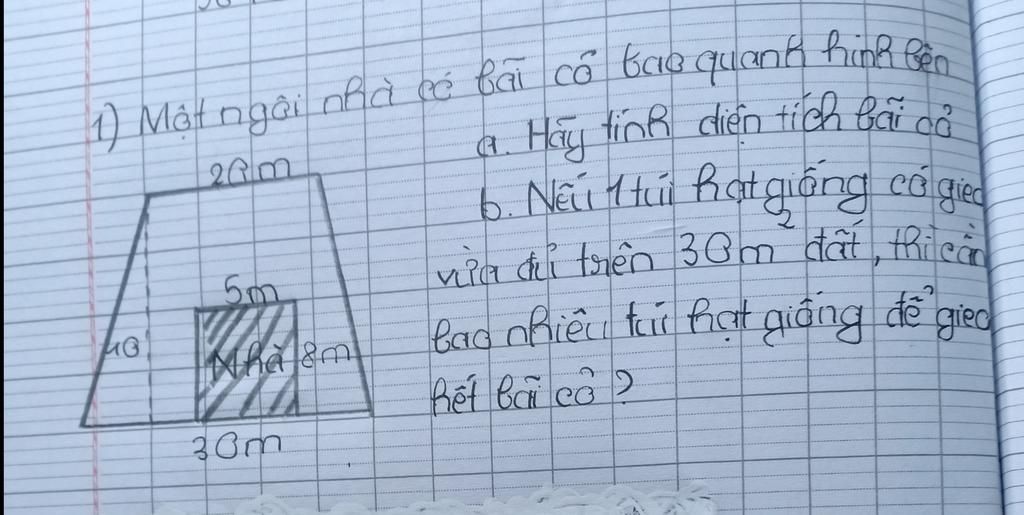 1) Một ngôi nhà có bãi cỏ bao quanh hình bên
a. Hãy tính diện tích bãi cỏ
b. Nếu 1 túi hạt giống cỏ gieo
vừa đủ trên 30m² đất, thì cần
bao nhiêu túi hạt giống để gieo
hết bãi cỏ?
20m
5m
Nhà 8m
30m